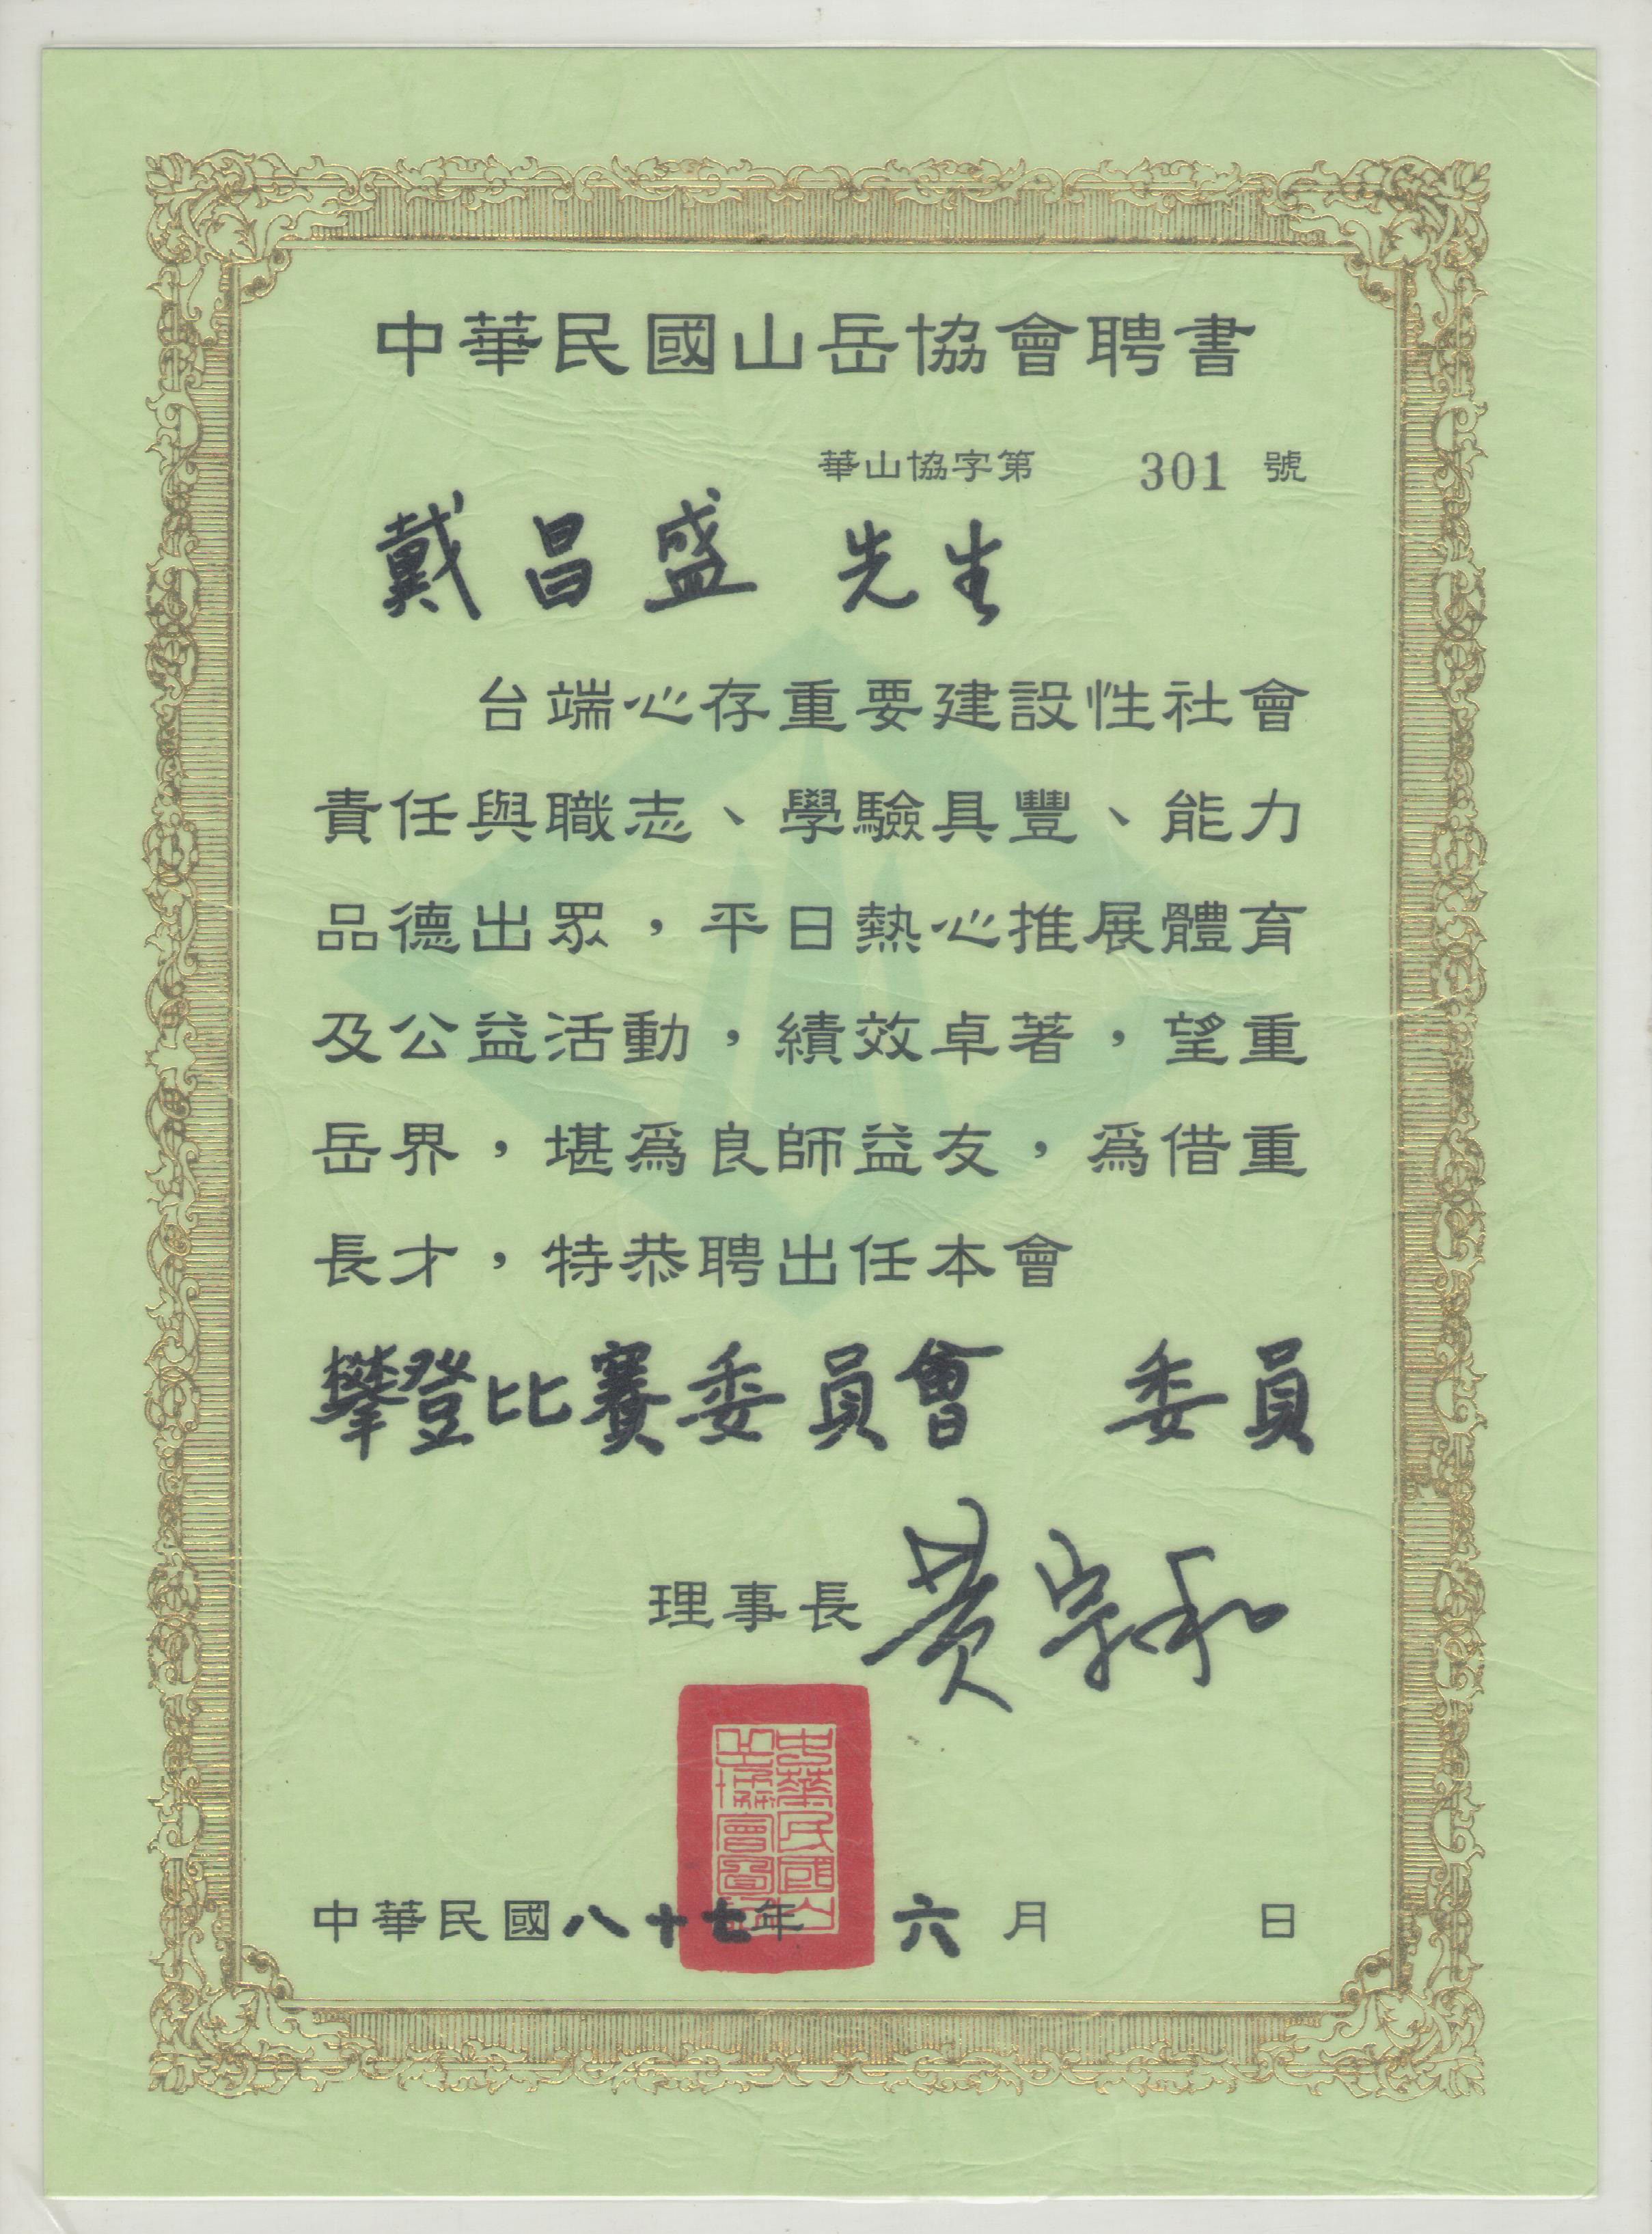 中華民國山岳協會聘書
華山協字第 301 號
戴昌盛 先生
台端心存重要建設性社會
責任與職志、學驗具豐、能力
品德出眾，平日熱心推展體育
及公益活動，績效卓著，望重
岳界，堪為良師益友，為借重
長才，特恭聘出任本會
攀登比賽委員會 委員
理事長 黃宗和
中華民國山
岳協會圖記
中華民國八十七年 六 月 日